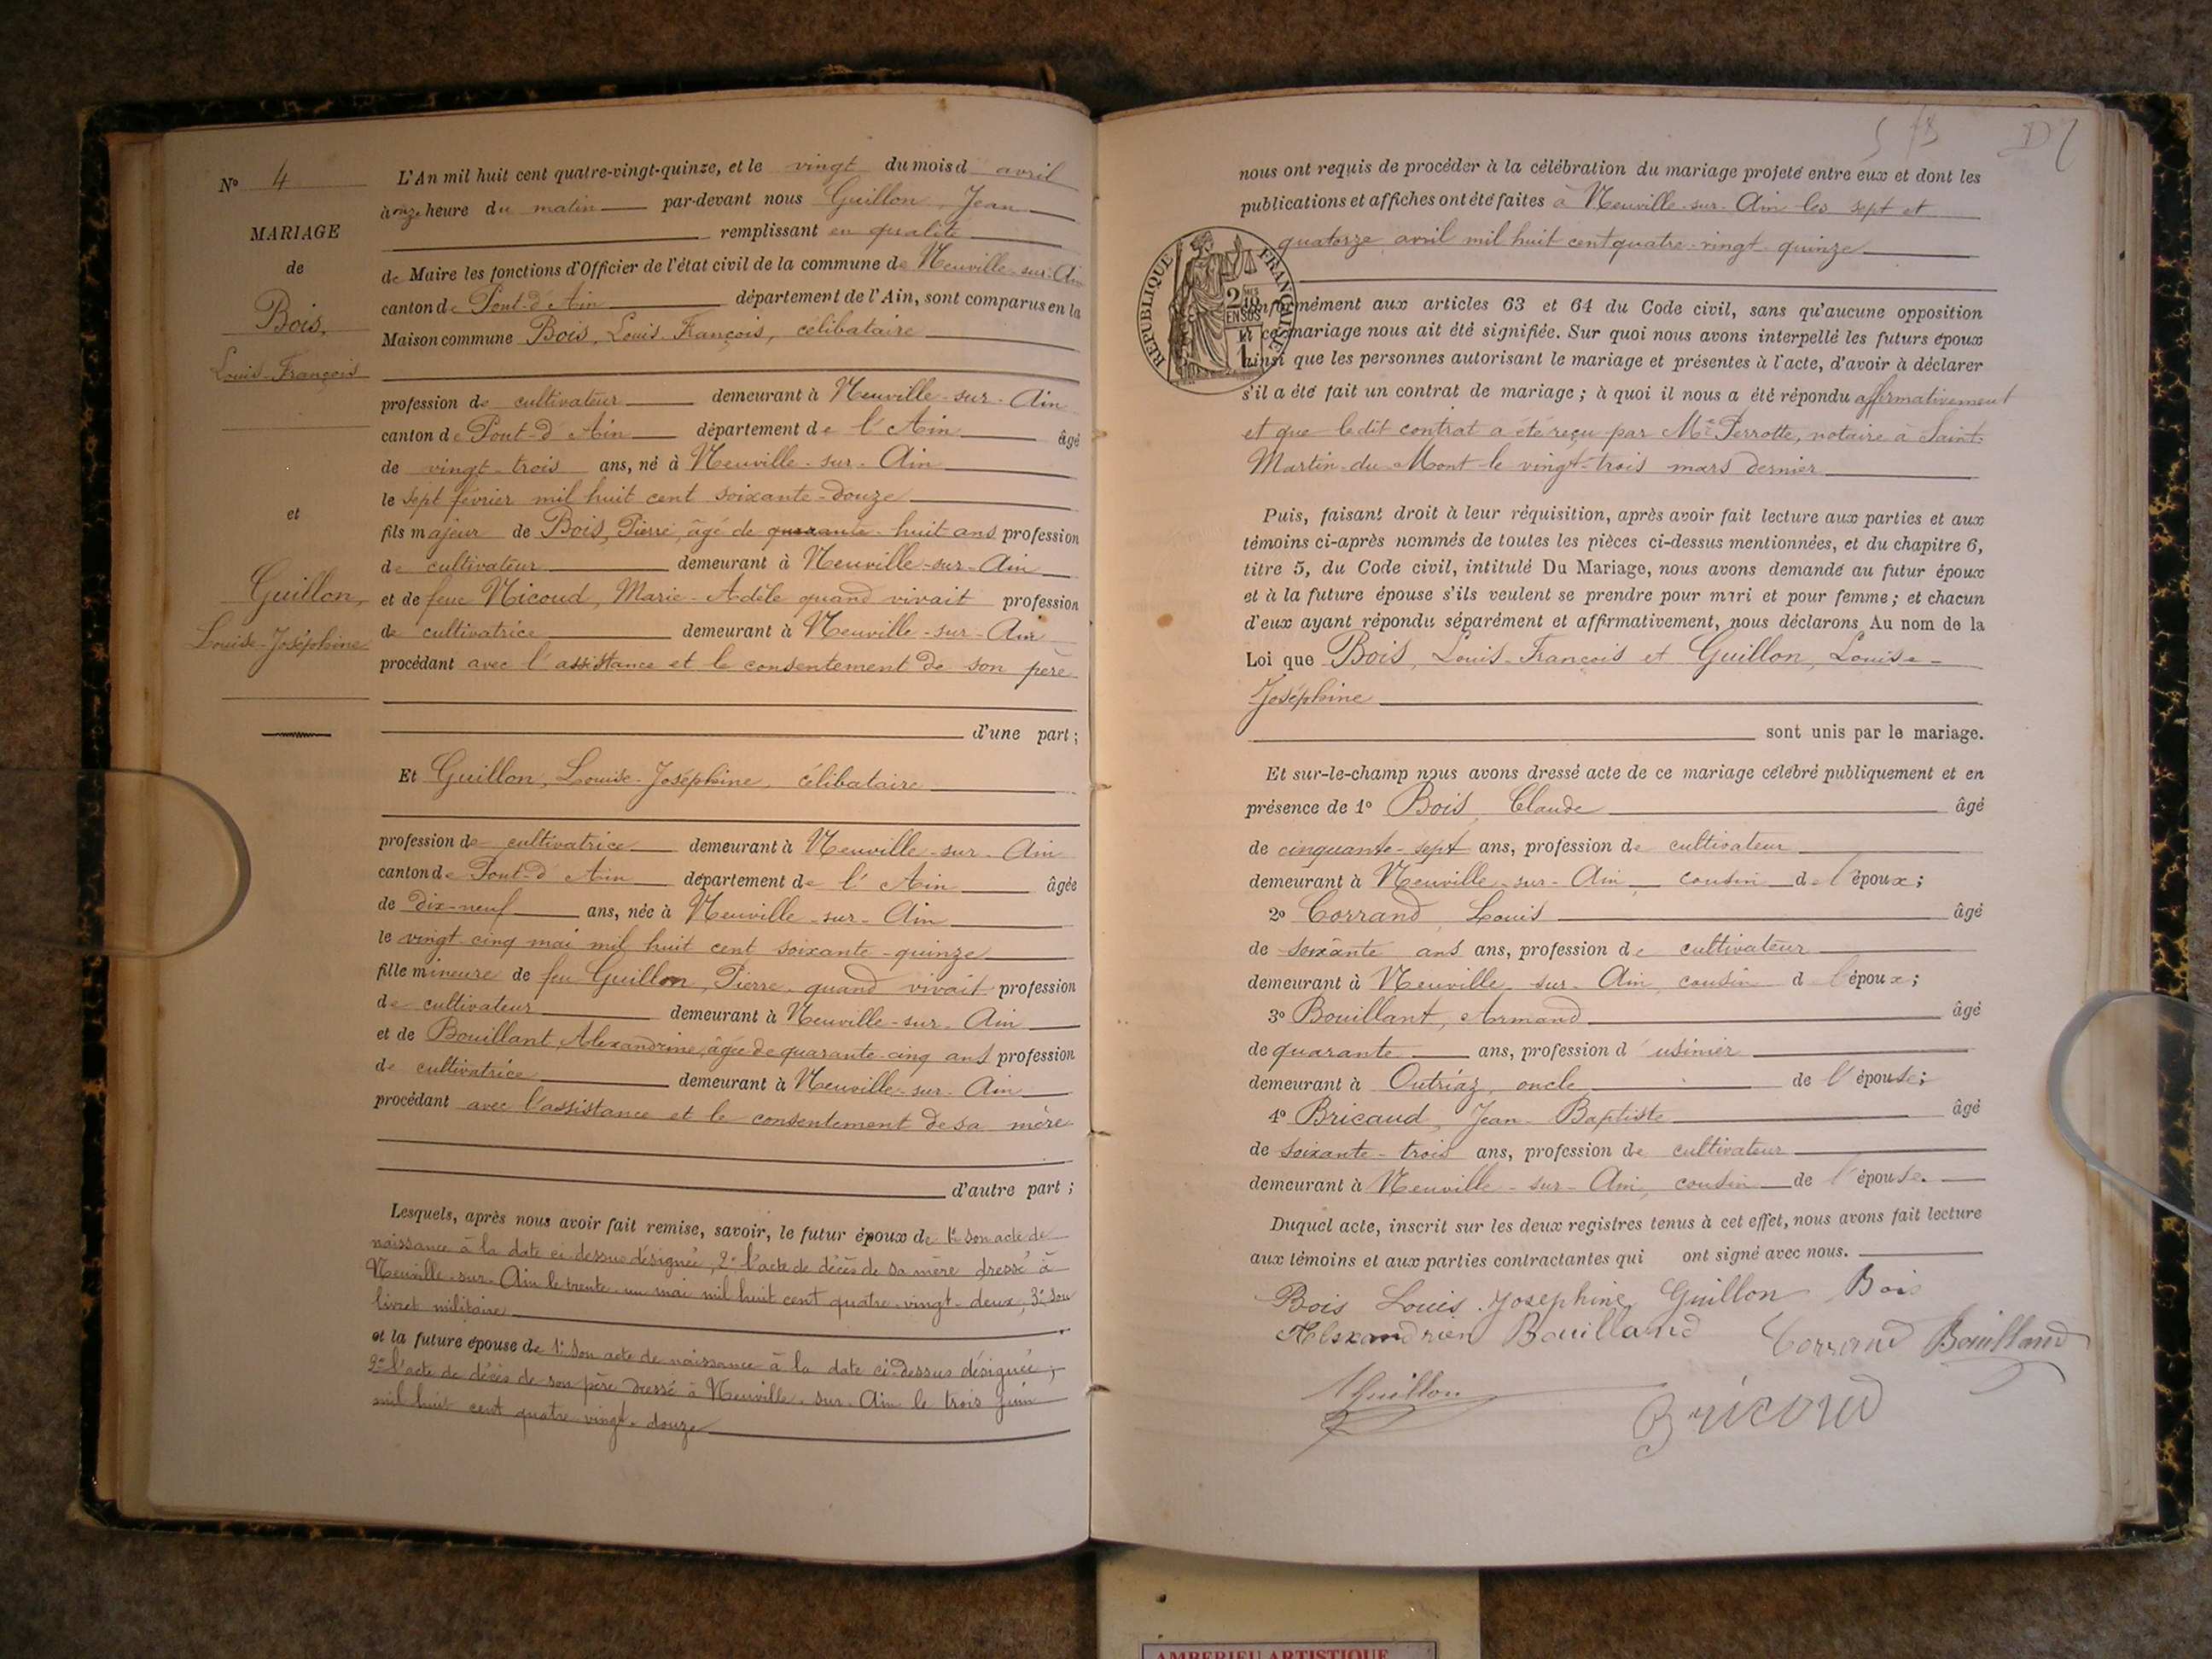 N° 4
MARIAGE
de
Bois,
Louis-François
et
Guillon,
Louise-Joséphine
L'An mil huit cent quatre-vingt-quinze, et le vingt du mois d avril
à onze heure du matin par-devant nous Guillon, Jean
remplissant en qualité
de Maire les fonctions d'Officier de l'état civil de la commune de Neuville-sur-Ain
canton de Pont-d'Ain département de l'Ain, sont comparus en la
Maison commune Bois, Louis-François, célibataire
profession de cultivateur demeurant à Neuville-sur-Ain
canton de Pont-d'Ain département de l'Ain âgé
de vingt-trois ans, né à Neuville-sur-Ain
le sept février mil huit cent soixante-douze
fils majeur de Bois, Pierre, âgé de quarante-huit ans profession
de cultivateur demeurant à Neuville-sur-Ain
et de feue Nicoud, Marie-Adèle quand vivait profession
de cultivatrice demeurant à Neuville-sur-Ain
procédant avec l'assistance et le consentement de son père
d'une part;
Et Guillon, Louise-Joséphine, célibataire
profession de cultivatrice demeurant à Neuville-sur-Ain
canton de Pont-d'Ain département de l'Ain âgée
de dix-neuf ans, née à Neuville-sur-Ain
le vingt-cinq mai mil huit cent soixante-quinze
fille mineure de feu Guillon, Pierre, quand vivait profession
de cultivateur demeurant à Neuville-sur-Ain
et de Bouillant, Alexandrine, âgée de quarante-cinq ans profession
de cultivatrice demeurant à Neuville-sur-Ain
procédant avec l'assistance et le consentement de sa mère
d'autre part;
Lesquels, après nous avoir fait remise, savoir, le futur époux de 1° son acte de
naissance à la date ci-dessus désignée, 2° l'acte de décès de sa mère dressé à
Neuville-sur-Ain le trente-un mai mil huit cent quatre-vingt-deux, 3° son
livret militaire
et la future épouse de 1° son acte de naissance à la date ci-dessus désignée,
2° l'acte de décès de son père dressé à Neuville-sur-Ain le trois juin
mil huit cent quatre-vingt-douze
nous ont requis de procéder à la célébration du mariage projeté entre eux et dont les
publications et affiches ont été faites à Neuville-sur-Ain les sept et
quatorze avril mil huit cent quatre-vingt-quinze
REPUBLIQUE FRANÇAISE
conformément aux articles 63 et 64 du Code civil, sans qu'aucune opposition
à ce mariage nous ait été signifiée. Sur quoi nous avons interpellé les futurs époux
ainsi que les personnes autorisant le mariage et présentes à l'acte, d'avoir à déclarer
s'il a été fait un contrat de mariage; à quoi il nous a été répondu affirmativement
et que ledit contrat a été reçu par Me Perrotte, notaire à Saint-
Martin-du-Mont le vingt-trois mars dernier
Puis, faisant droit à leur réquisition, après avoir fait lecture aux parties et aux
témoins ci-après nommés de toutes les pièces ci-dessus mentionnées, et du chapitre 6,
titre 5, du Code civil, intitulé Du Mariage, nous avons demandé au futur époux
et à la future épouse s'ils veulent se prendre pour mari et pour femme; et chacun
d'eux ayant répondu séparément et affirmativement, nous déclarons Au nom de la
Loi que Bois, Louis-François et Guillon, Louise-
Joséphine
sont unis par le mariage.
Et sur-le-champ nous avons dressé acte de ce mariage célébré publiquement et en
présence de 1° Bois, Claude âgé
de cinquante-sept ans, profession de cultivateur
demeurant à Neuville-sur-Ain cousin de l'époux;
2° Corrand, Louis âgé
de soixante ans ans, profession de cultivateur
demeurant à Neuville-sur-Ain, cousin d l'époux;
3° Bouillant, Armand âgé
de quarante ans, profession d'usinier
demeurant à Outriaz, oncle de l'épouse;
4° Bricaud, Jean-Baptiste âgé
de soixante-trois ans, profession de cultivateur
demeurant à Neuville-sur-Ain, cousin de l'épouse.
Duquel acte, inscrit sur les deux registres tenus à cet effet, nous avons fait lecture
aux témoins et aux parties contractantes qui ont signé avec nous.
Bois Louis Josephine Guillon Bois
Bouilland Corrand Bouilland
Guillon
Bricoud
AMBERIEU ARTISTIQUE